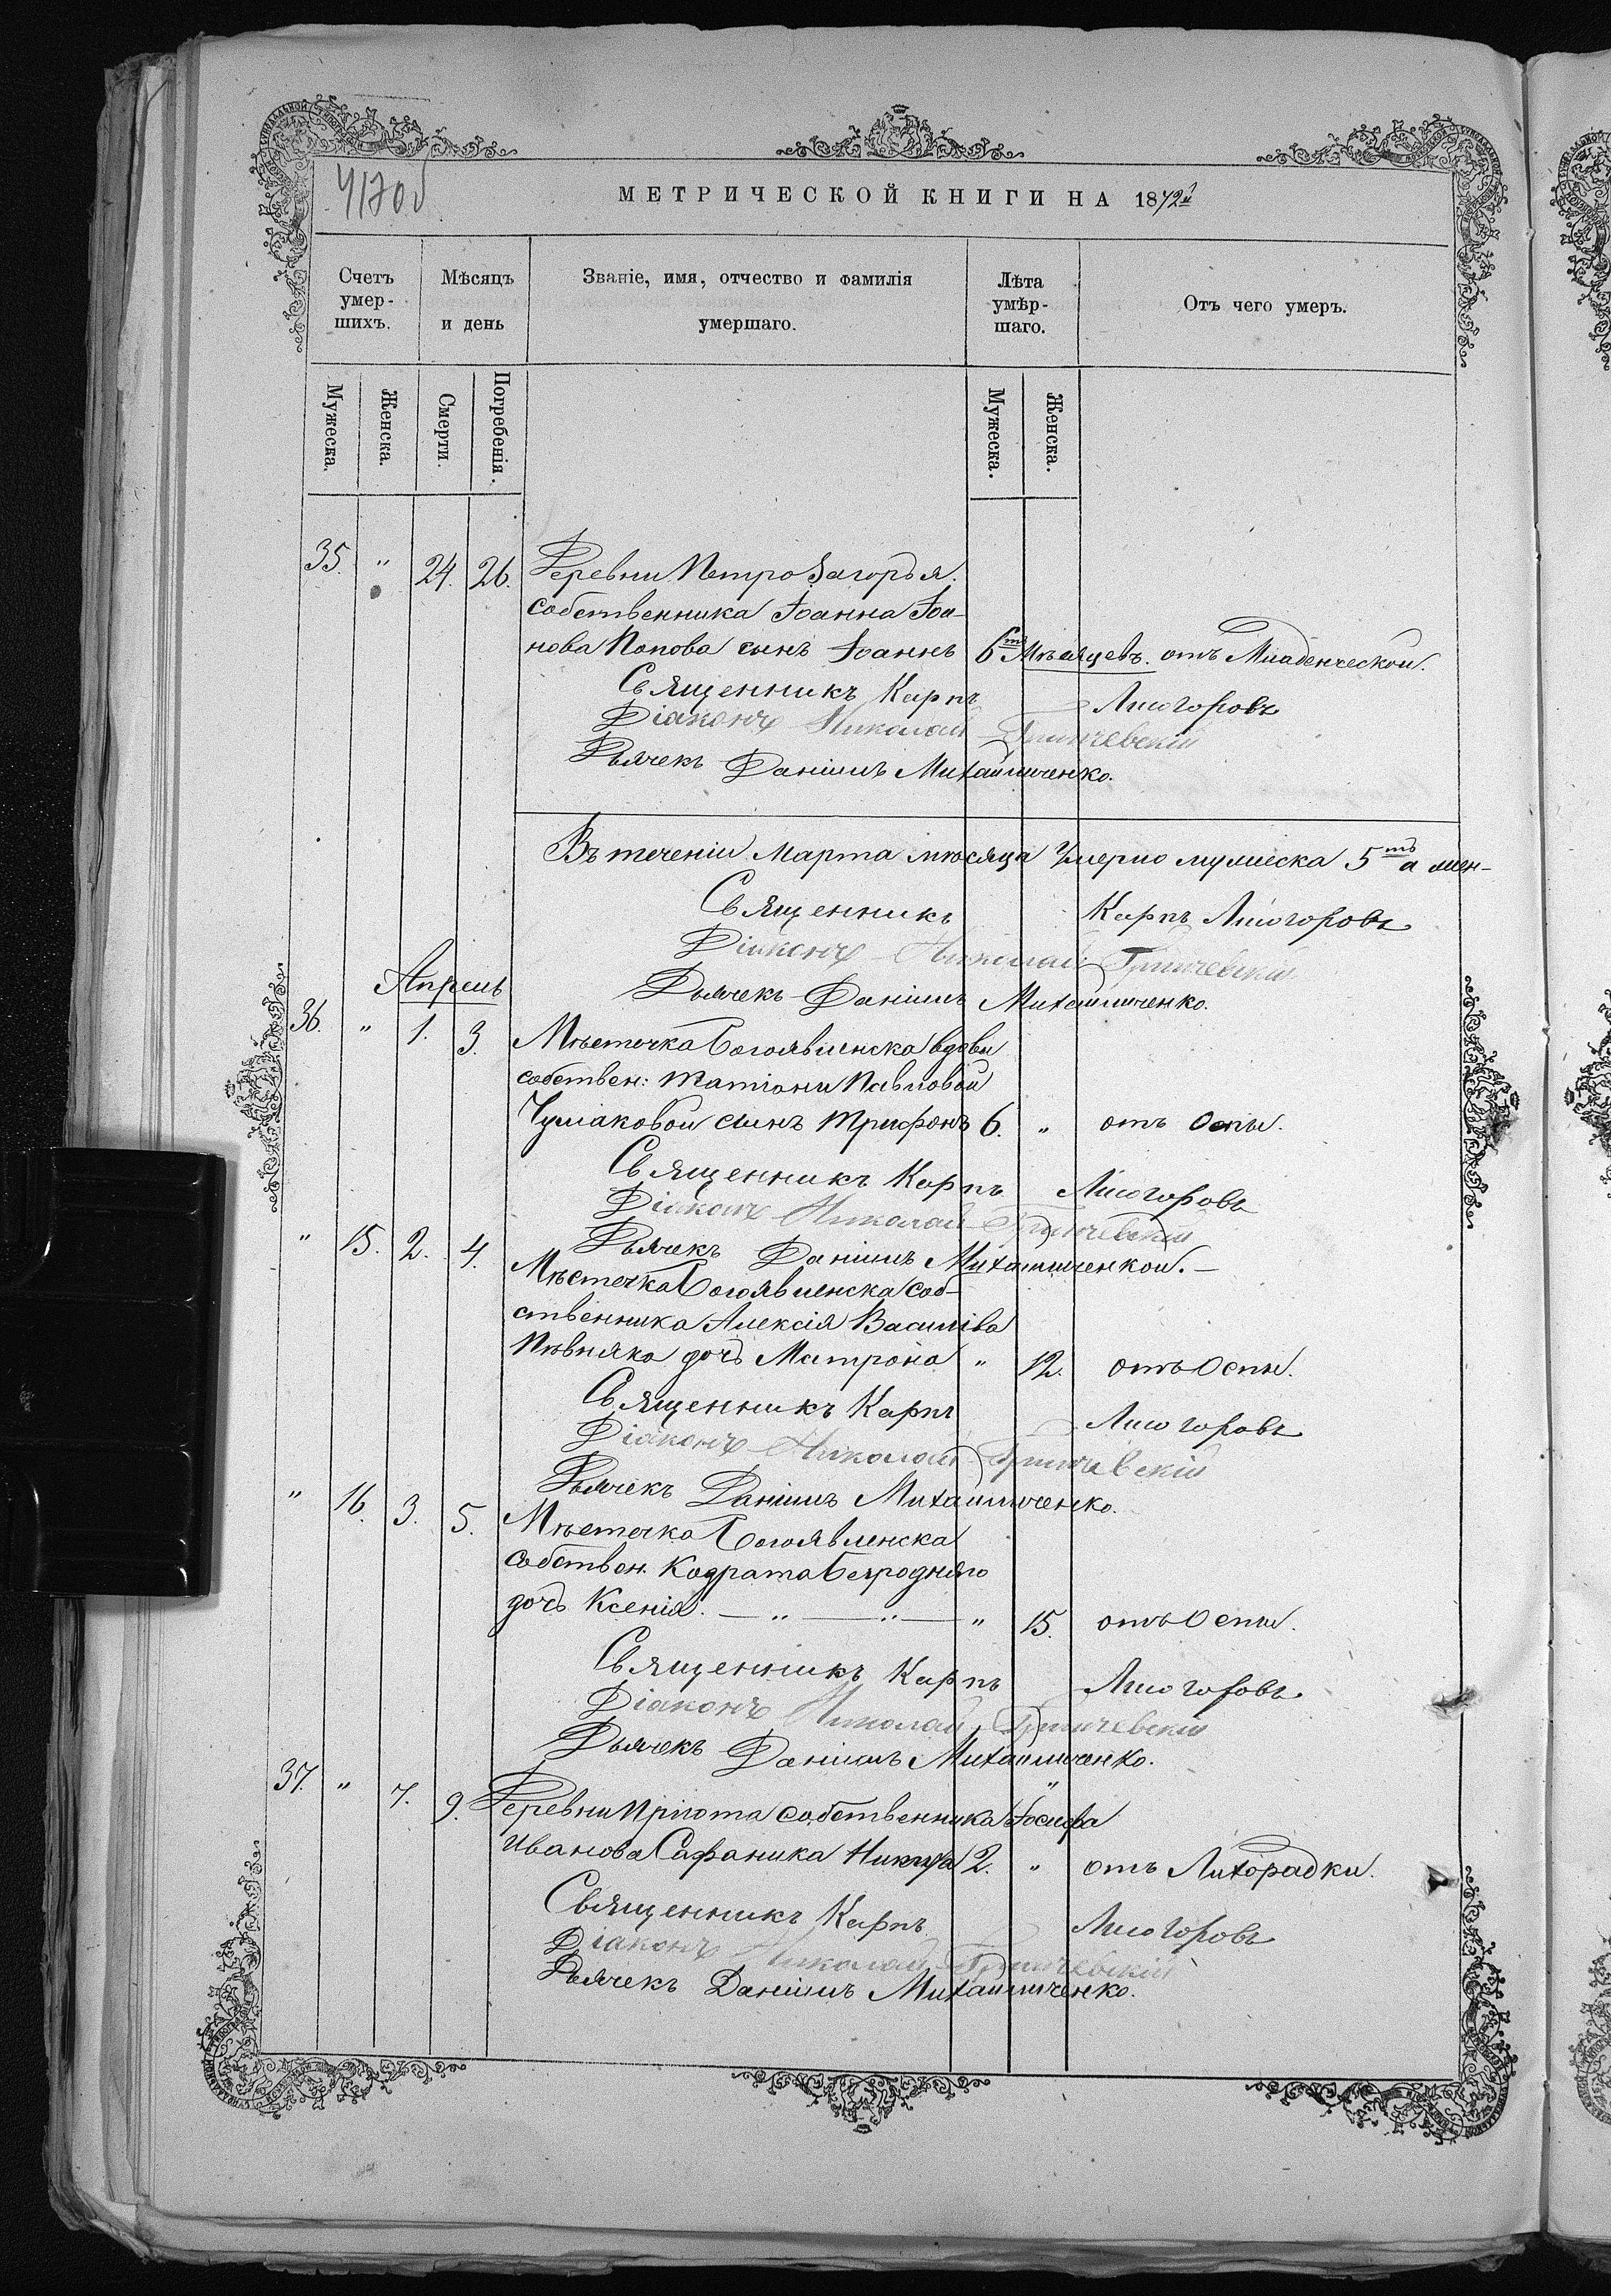 4170б
МЕТРИЧЕСКОЙ КНИГИ НА 1872й
Счетъ умер-шихъ.
Мѣсяцъ и день
Званіе, имя, отчество и фамилія умершаго.
Лѣта умѣр-шаго.
Отъ чего умеръ.
Мужеска.
Женска.
Смерти.
Погребенія.
Мужеска.
Женска.
35. " 24. 26. Деревни Петро Загорья.
собственника Іоанна Іоа-
нова Попова сынъ Іоаннъ 6ть Мѣсяцевъ. отъ Младенческой.
Священникъ Карпъ Лисогоровъ
Діаконъ Николай Гринчевскій
Дьячекъ Даніилъ Михайличенко.
Въ теченіи Марта мѣсяца умерло мужеска 5ть а жен-
Священникъ Карпъ Лисогоровъ
Діаконъ Николай Гринчевскій
Апрель
Дьячекъ Даніилъ Михайличенко.
36. " 1. 3. Мѣсточка Богоявленска вдовы
собствен: Татіони Павловой
Чумаковой сынъ Трифонъ 6. " отъ Оспы.
Священникъ Карпъ Лисогоровъ
Діаконъ Николай Гринчевскій
Дьячекъ Даніилъ Михайличенкой.
" 15. 2. 4. Мѣсточка Богоявленска соб-
ственника Алексія Василіва
Пѣвняка дочь Матрона " 12. отъ Оспы.
Священникъ Карпъ Лисогоровъ
Діаконъ Николай Гринчевскій
Дьячекъ Даніилъ Михайличенко.
" 16. 3. 5. Мѣсточка Богоявленска
собствен. Кодрата Безродняго
дочь Ксенія. — " — " — " 15. отъ Оспы.
Священникъ Карпъ Лисогоровъ
Діаконъ Николай Гринчевскій
Дьячекъ Даніилъ Михайличенко.
37. " 7. 9. Деревни Пріюта собственника Іосифа
Иванова Сафаника 2. " отъ Лихорадки.
Священникъ Карпъ Лисогоровъ
Діаконъ Николай Гринчевскій
Дьячекъ Даніилъ Михайличенко.